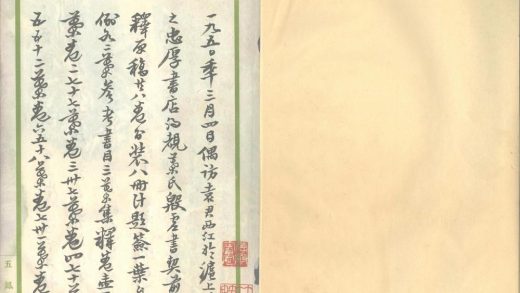 一九五〇年三月四日偶訪袁君西江於滬上
之忠厚書店得觀葉氏殷虛書契前
釋原稿共八卷分裝八冊計題簽一葉
例各二葉參考書目三葉集釋卷壹
葉卷二七十七葉卷三卅七葉卷四七十
五五十二葉卷六五十八葉卷七卅一葉卷
五鳳